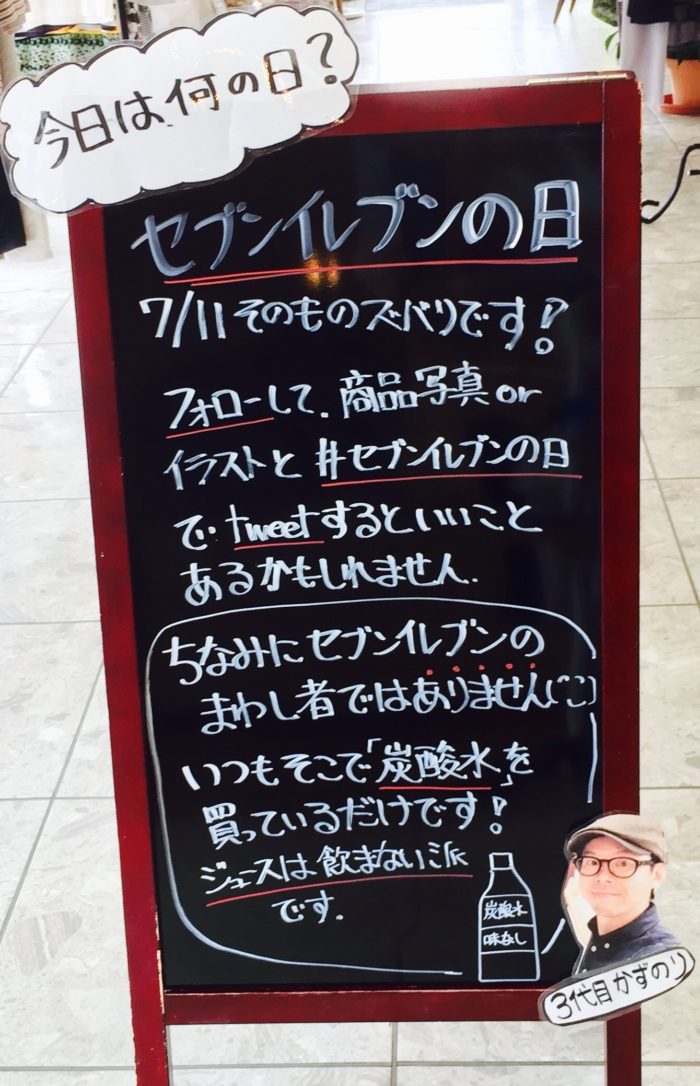 今日は何の日?
セブンイレブンの日
7/11そのものズバリです!
フォローして、商品写真or
イラストと #セブンイレブンの日
で tweetするといいこと
あるかもしれません.
ちなみにセブンイレブンの
まわし者ではありません(^^)
いつもそこで「炭酸水」を
買っているだけです!
ジュースは飲まない派
です.
炭酸水
味なし
3代目かずのり